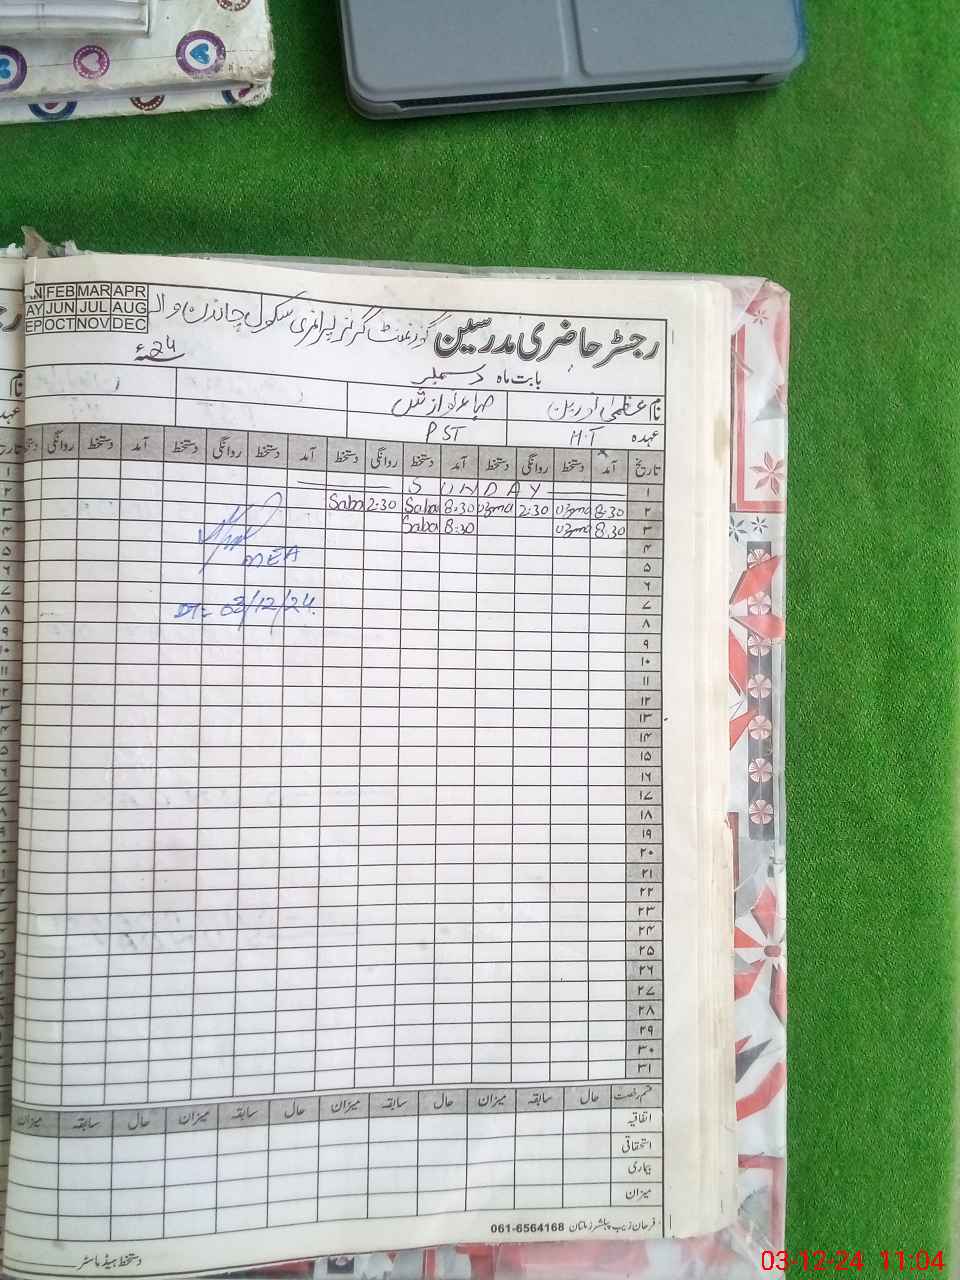 JAN FEB MAR APR
MAY JUN JUL AUG
SEP OCT NOV DEC
رجسٹر حاضری مدرسین گورنمنٹ گرلز پرائمری سکول چاندن والہ
بابت ماہ دسمبر 24ء
نام عظمیٰ ادریس صباء نواز ش
عہدہ H.T PST
تاریخ آمد دستخط روانگی دستخط آمد دستخط روانگی دستخط آمد دستخط روانگی دستخط آمد دستخط روانگی دستخط
۱ SUNDAY
۲ 8:30 Uzma 2:30 Uzma 8:30 Saba 2:30 Saba
۳ 8:30 Uzma 8:30 Saba
۴
MEA
۵
۶
۷
Dt= 03/12/24.
۸
۹
۱۰
۱۱
۱۲
۱۳
۱۴
۱۵
۱۶
۱۷
۱۸
۱۹
۲۰
۲۱
۲۲
۲۳
۲۴
۲۵
۲۶
۲۷
۲۸
۲۹
۳۰
۳۱
قسم رخصت حال سابقہ میزان حال سابقہ میزان حال سابقہ میزان حال سابقہ میزان
اتفاقیہ
استحقاقی
بیماری
میزان
فرحان زیب پبلشرز ملتان 061-6564168
دستخط ہیڈ ماسٹر
03-12-24 11:04